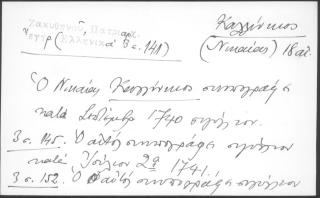 Ζακυθηνοῦ, Πατριαρχ.
ἔγγρ (Ἑλληνικά 3 σ. 141)
Καλλίνικος
(Νικαίας) 18 αἰ.
Ὁ Νικαίας Καλλίνικος συνυπογράφει
κατὰ Σεπτέμβρ 1740 σιγίλλιον.
3 σ. 145. Ὁ αὐτὸς συνυπογράφει σιγίλλιον
κατὰ Ἰούλιον 2α 1741.
3 σ. 152. Ὁ αὐτὸς συνυπογράφει σιγίλλιον